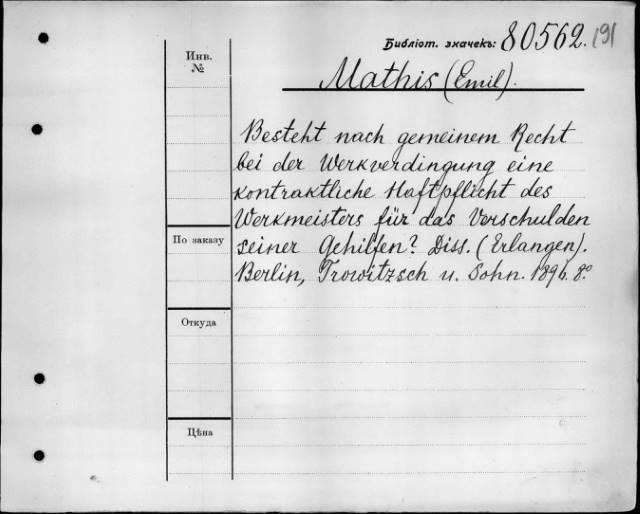 Библіот. значекъ: 80562. 191
Инв. №
Mathis (Emil).
Besteht nach gemeinem Recht
bei der Werkverdingung eine
kontraktliche Haftpflicht des
Werkmeisters für das Verschulden
По заказу
seiner Gehilfen? Diss. (Erlangen).
Berlin, Trowitzsch u. Sohn. 1896. 8.º
Откуда
Цѣна